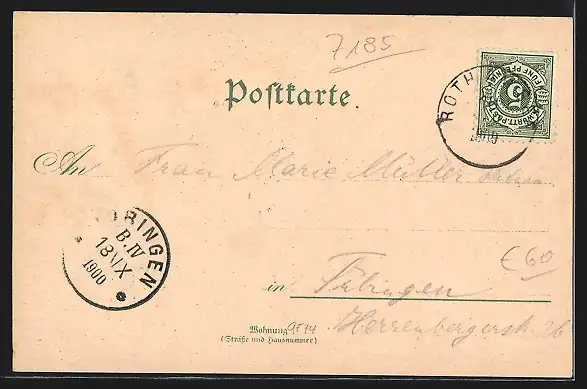 7185
Postkarte.
ROTH
K. WÜRTT. POST
FÜNF PFENNIG
5
An Frau Marie Müller
TÜBINGEN
B. IV
13 IX
1900
€ 60
in Tübingen
Wohnung
(Straße und Hausnummer)
Herrenbergerstr. 26